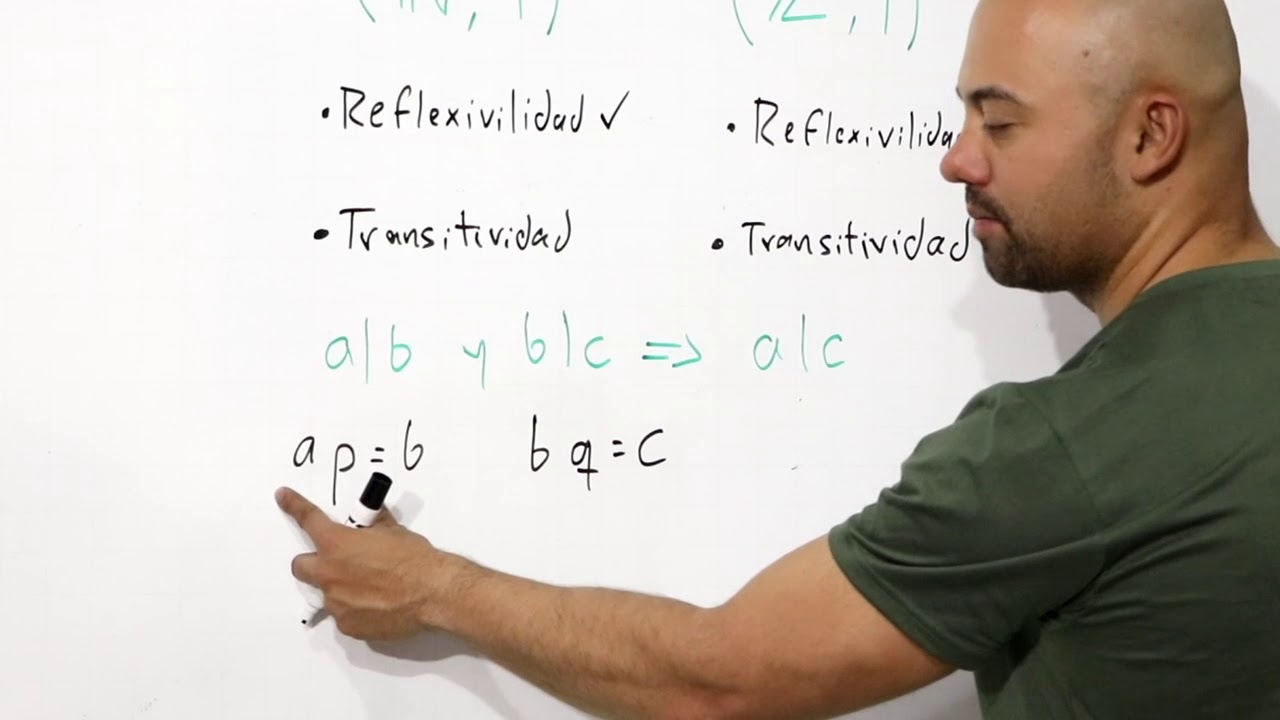 (ℕ, |) (ℤ, |)
• Reflexivilidad ✓ • Reflexivilida
• Transitividad • Transitividad
a|b y b|c => a|c
ap=b bq=c